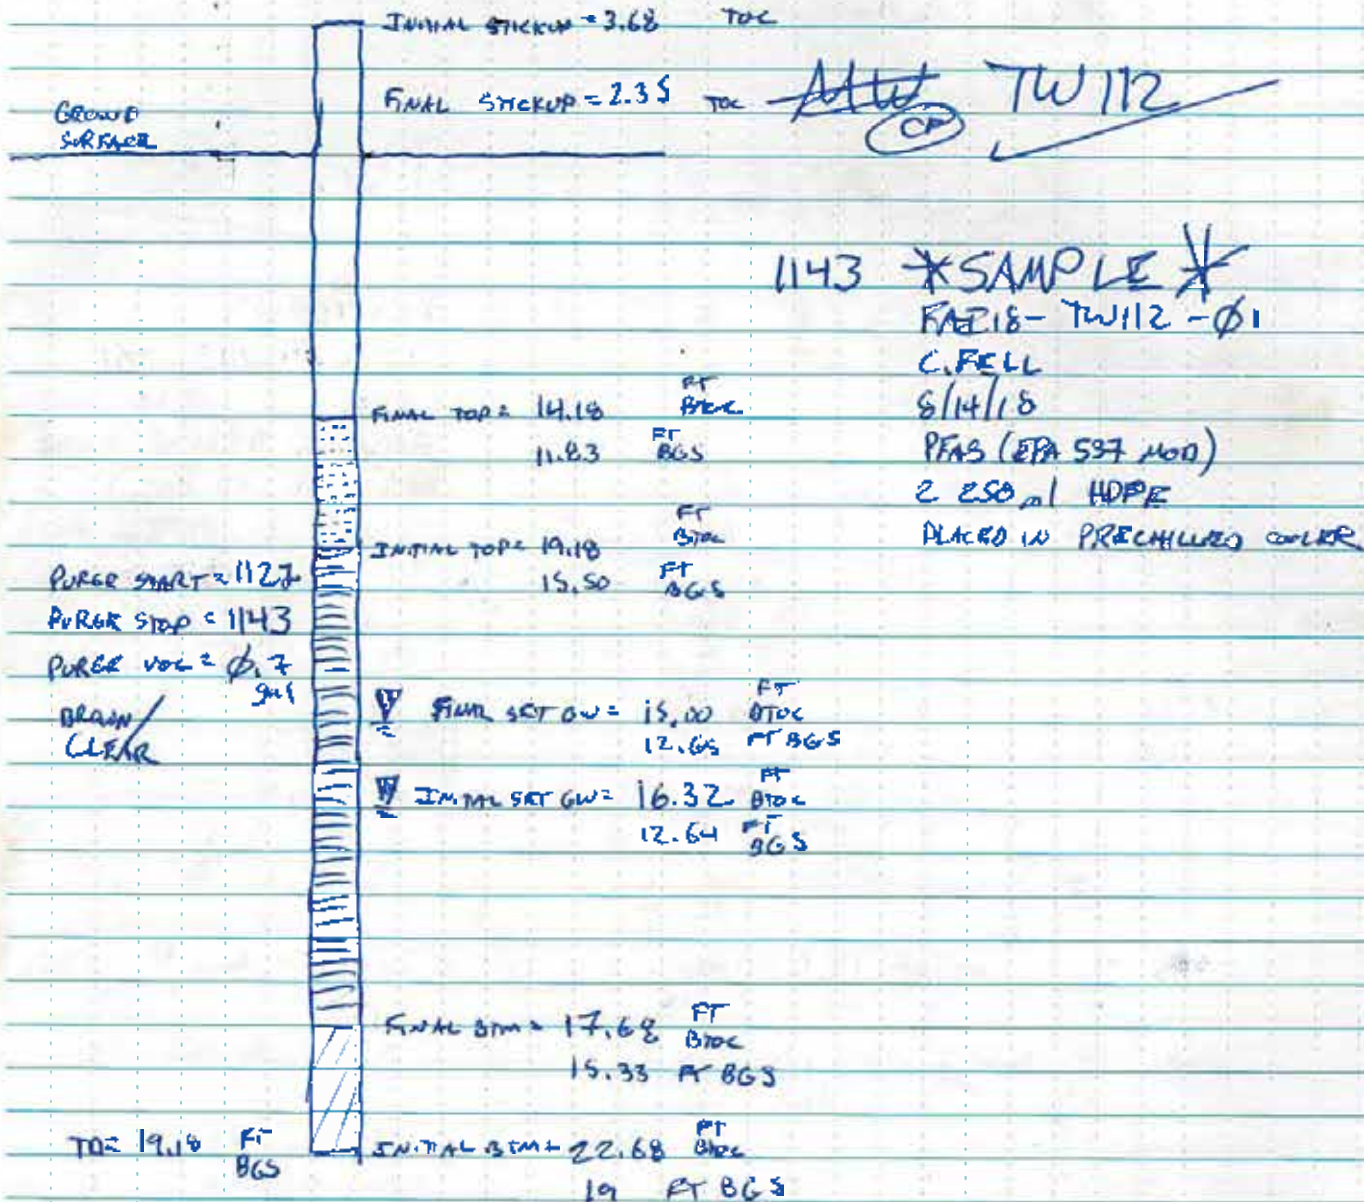 INITIAL STICKUP = 3.68 TOC
FINAL STICKUP = 2.35 TOC
MW TW112
CF
GROUND
SURFACE
1143 *SAMPLE*
FAI18-TW112-Ø1
C. FELL
8/14/18
PFAS (EPA 537 MOD)
2 250 ml HDPE
PLACED IN PRECHILLED COOLER
FINAL TOP = 14.18 FT BTOC
11.83 FT BGS
INITIAL TOP = 19.18 FT BTOC
15.50 FT BGS
PURGE START = 1127
PURGE STOP = 1143
PURGE VOL = Ø.7
gal
BROWN/
CLEAR
FINAL SET GW = 15.00 FT BTOC
12.65 FT BGS
INITIAL SET GW = 16.32 FT BTOC
12.64 FT BGS
FINAL BTM = 17.68 FT BTOC
15.33 FT BGS
TD = 19.18 FT BGS
INITIAL BTM = 22.68 FT BTOC
19 FT BGS